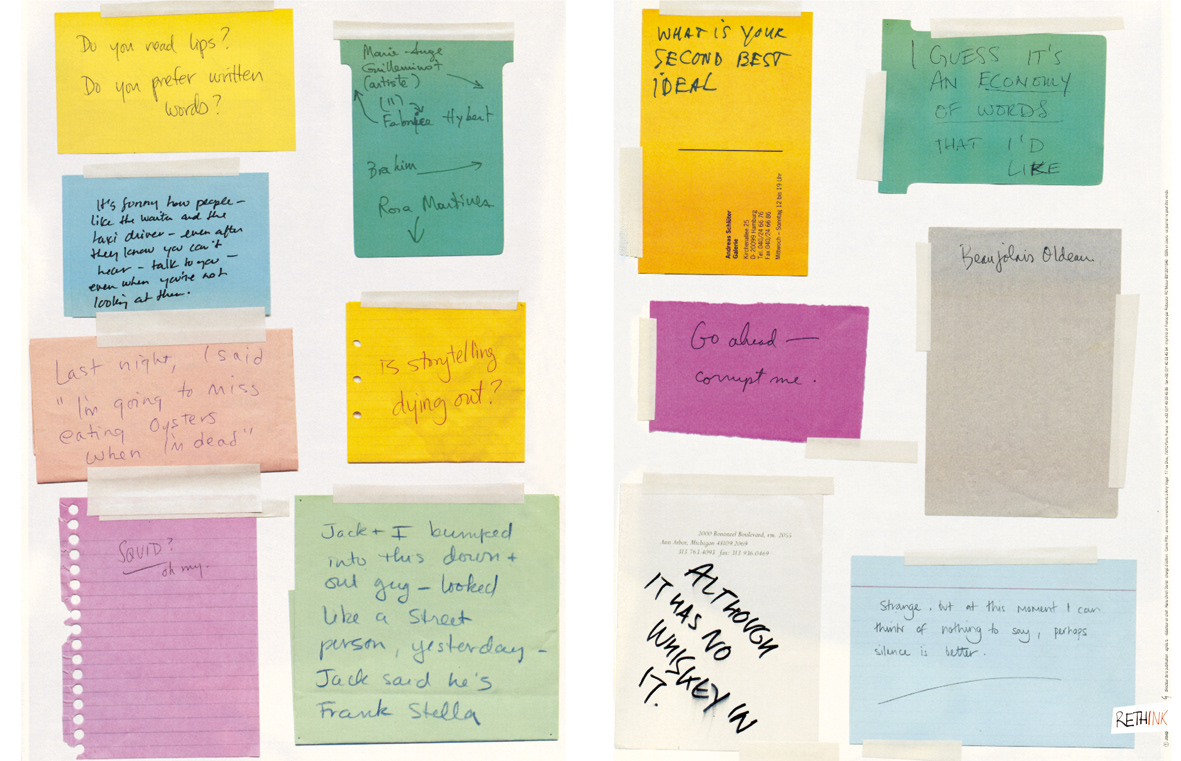 Do you read lips?
Do you prefer written
words?
Marie-Ange
Guilleminot
(artiste)
(11)
Hybert
Brahim
Rosa Martinez
It's funny how people –
like the waiter and the
taxi driver – even after
they know you can't
hear – talk to you –
even when you're not
looking at them.
Last night, I said
"I'm going to miss
eating Oysters
when I'm dead"
Is storytelling
dying out?
SQUID?
oh my.
Jack + I bumped
into this down +
out guy – looked
like a street
person, yesterday –
Jack said he's
Frank Stella
WHAT IS YOUR
SECOND BEST
IDEAL
Andreas Schlüter
Galerie
Kirchenallee 25
D-20099 Hamburg
Tel. 040/24 66 76
Fax 040/24 66 86
Mittwoch – Sonntag 12 bis 19 Uhr
I GUESS IT'S
AN ECONOMY
OF WORDS
THAT I'D
LIKE
Beaujolais Oldeau.
Go ahead —
corrupt me.
2000 Bonisteel Boulevard, rm. 2055
Ann Arbor, Michigan 48109.2069
313 763.4093 fax: 313 936.0469
ALTHOUGH
IT HAS NO
WHISKEY IN
IT.
Strange. but at this moment I can
think of nothing to say, perhaps
silence is better.
RETHINK